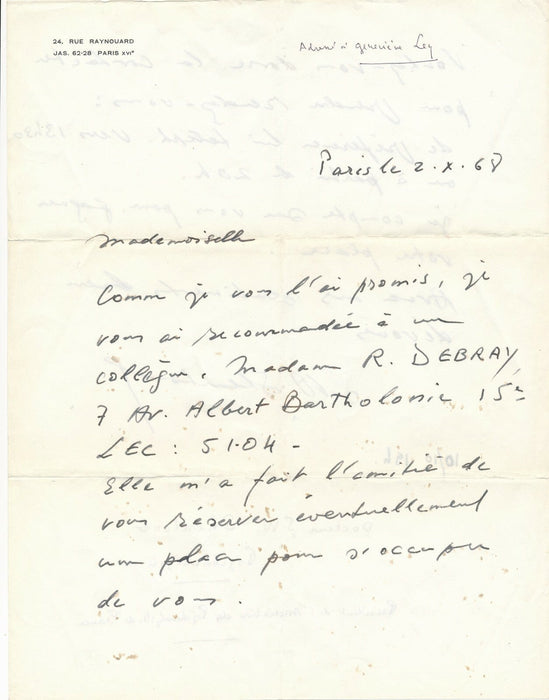 24, RUE RAYNOUARD
JAS. 62-28 PARIS XVIe
à geneviève Ley
Paris le 2.X.68
Mademoiselle
Comme je vous l'ai promis, je
vous ai recommandée à un
collègue, Madame R. DEBRAY,
7 Av. Albert Bartholomé 15e
LEC : 51.04 -
Elle m'a fait l'amitié de
vous réserver éventuellement
une place pour s'occuper
de vous.